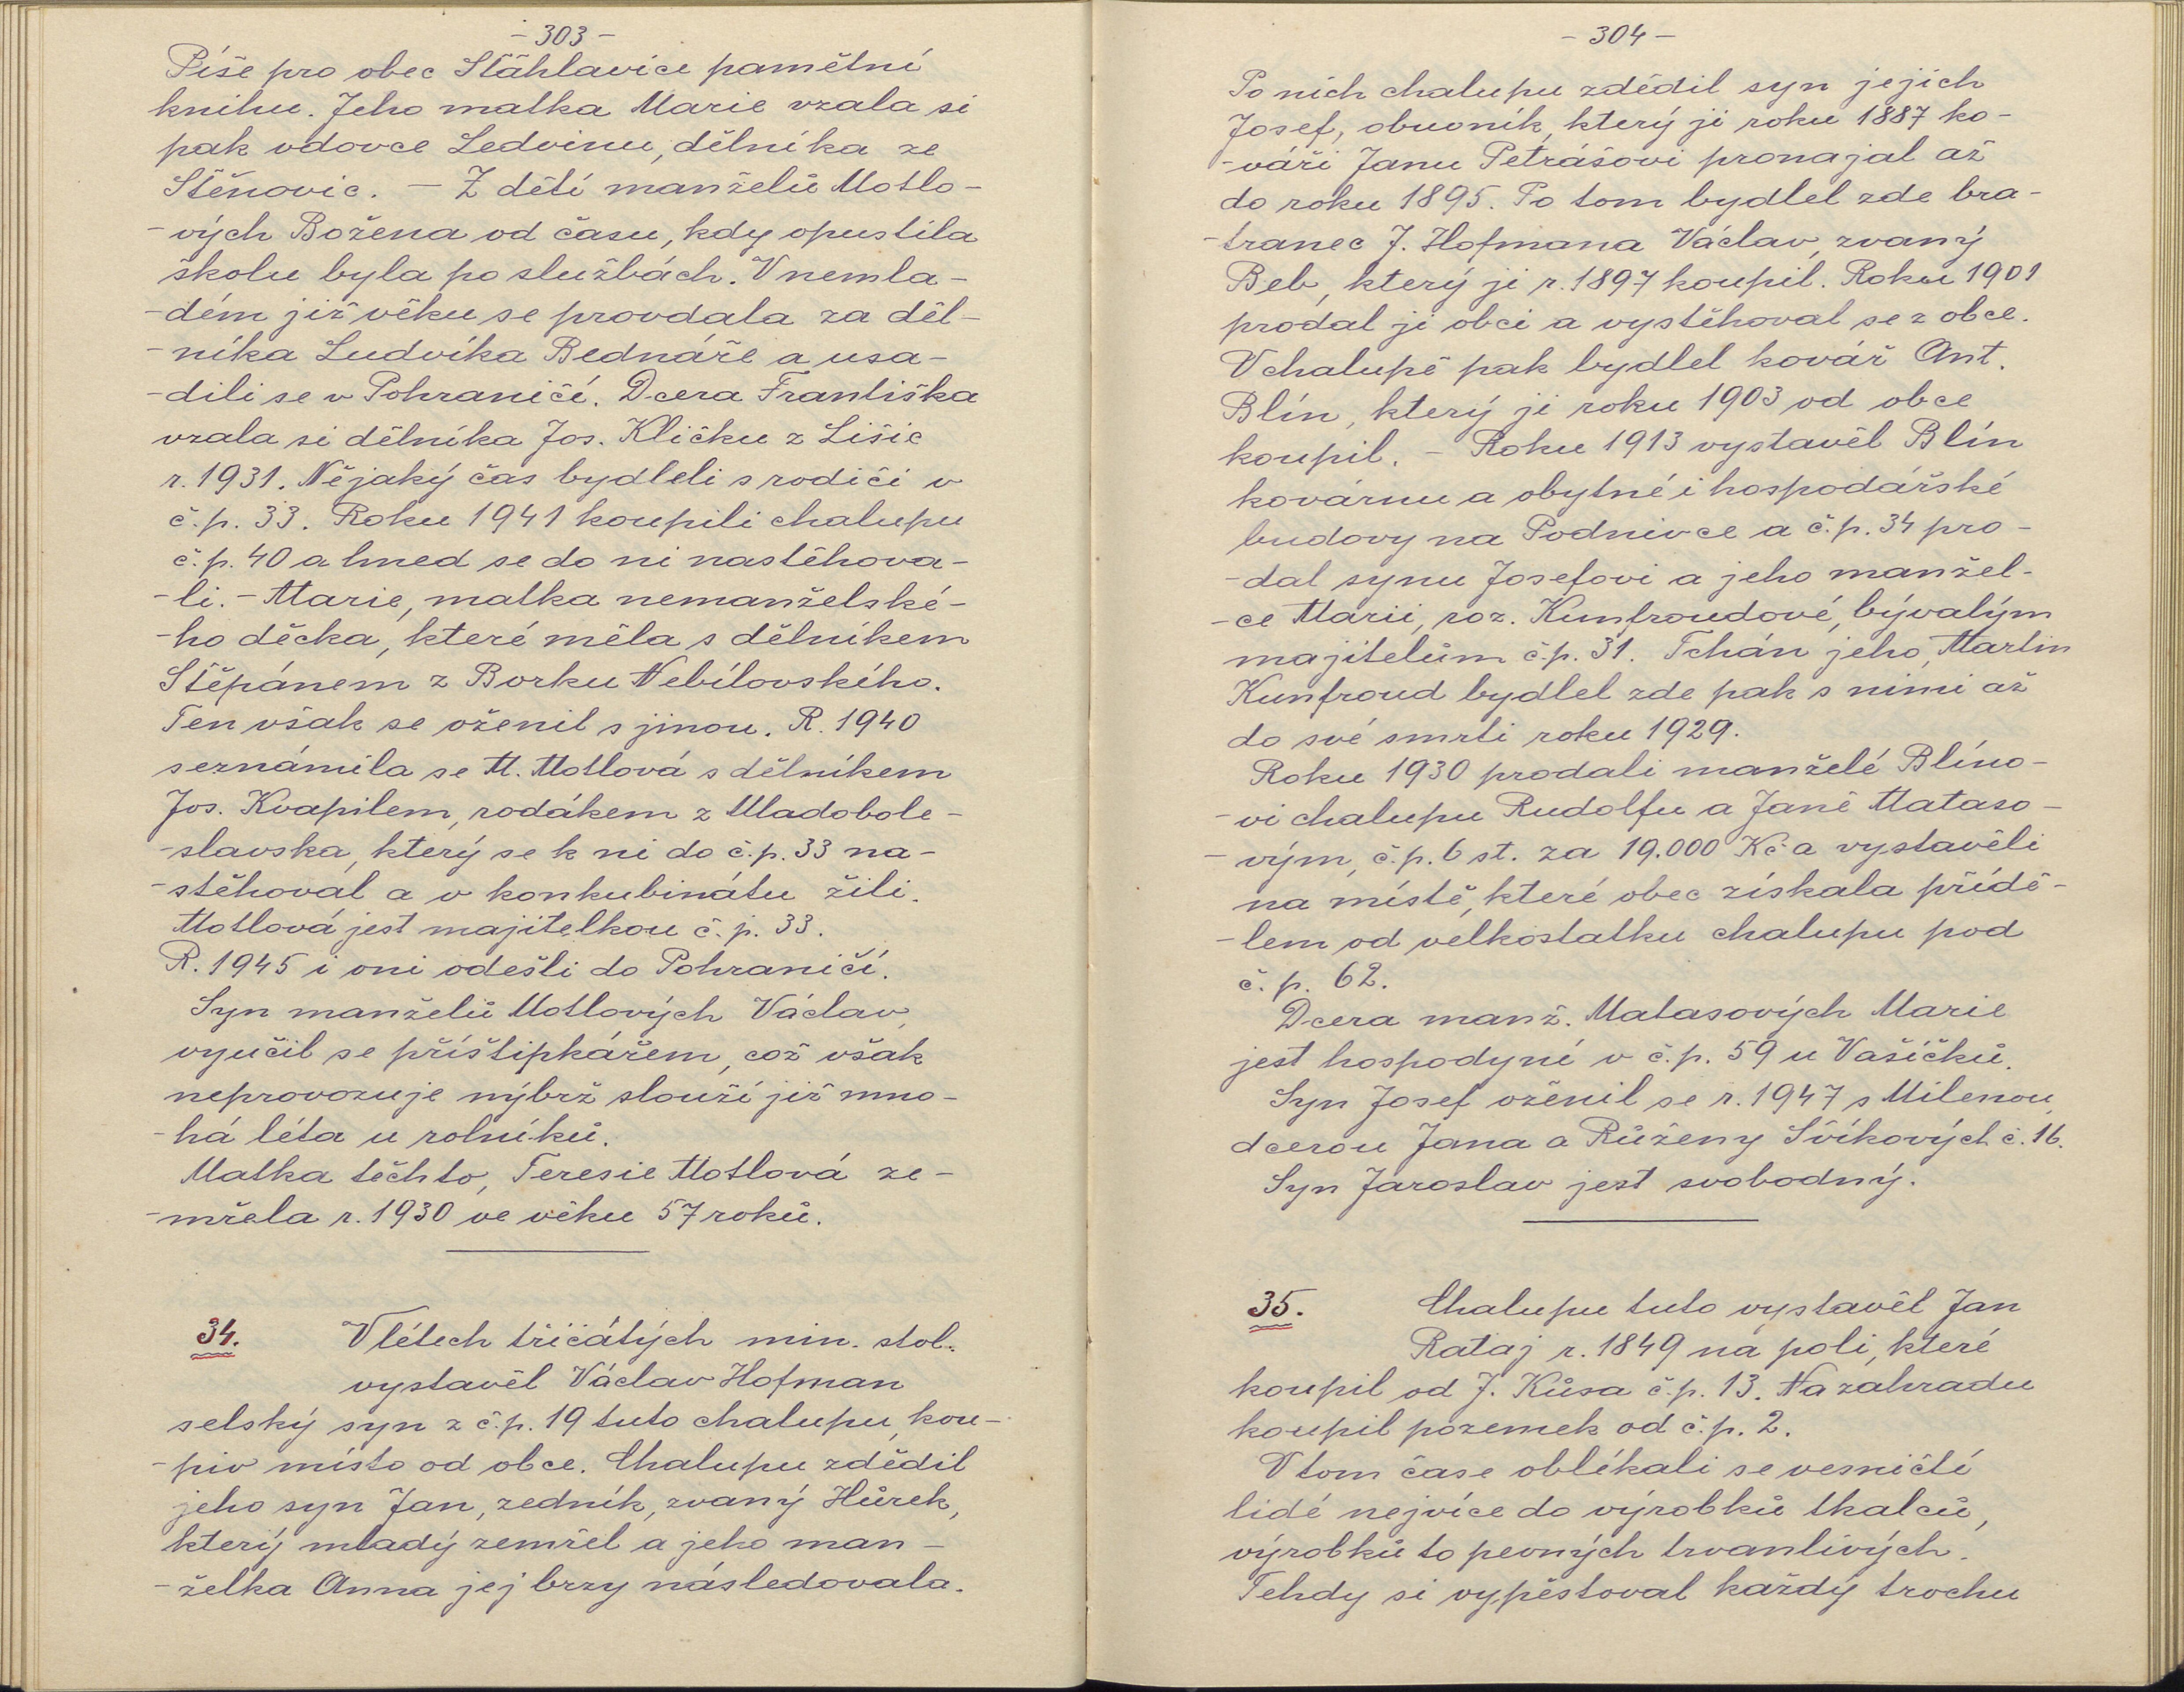 - 303 -
Píše pro obec Šťáhlavice pamětní
knihu. Jeho matka Marie vzala si
pak vdovce Ledvinu, dělníka ze
Štěnovic. - Z dětí manželů Motlo-
-vých Božena od času, kdy opustila
školu byla po službách. V nemla-
-dém již věku se provdala za děl-
-níka Ludvíka Bednáře a usa-
-dili se v Pohraničí. Dcera Františka
vzala si dělníka Jos. Kličku z Lišic
r. 1931. Nějaký čas bydleli s rodiči v
č. p. 33. Roku 1941 koupili chalupu
č. p. 40 a hned se do ní nastěhova-
-li. - Marie, matka nemanželské-
-ho děcka, které měla s dělníkem
Štěpánem z Borku Nebílovského.
Ten však se oženil s jinou. R. 1940
seznámila se M. Motlová s dělníkem
Jos. Kvapilem, rodákem z Mladobole-
-slavska, který se k ní do č. p. 33 na-
-stěhoval a v konkubinátu žili.
Motlová jest majitelkou č. p. 33.
R. 1945 i oni odešli do Pohraničí.
Syn manželů Motlových Václav,
vyučil se příštipkářem, což však
neprovozuje nýbrž slouží již mno-
-há léta u rolníků.
Matka těchto, Teresie Motlová ze-
-mřela r. 1930 ve věku 57 roků.
34. V létech třicátých min. stol.
vystavěl Václav Hofman
selský syn z č. p. 19 tuto chalupu, kou-
-piv místo od obce. Chalupu zdědil
jeho syn Jan, zedník, zvaný Hůrek,
který mladý zemřel a jeho man-
-želka Anna jej brzy následovala.
- 304 -
Po nich chalupu zdědil syn jejich
Josef, obuvník, který ji roku 1887 ko-
-váři Janu Petrášovi pronajal až
do roku 1895. Po tom bydlel zde bra-
-tranec J. Hofmana Václav, zvaný
Beb, který ji r. 1897 koupil. Roku 1901
prodal ji obci a vystěhoval se z obce.
V chalupě pak bydlel kovář Ant.
Blín, který ji roku 1903 od obce
koupil. - Roku 1913 vystavěl Blín
kovárnu a obytné i hospodářské
budovy na Podnivce a č. p. 34 pro-
-dal synu Josefovi a jeho manžel-
-ce Marii, roz. Kunfroudové, bývalým
majitelům č. p. 31. Tchán jeho, Martin
Kunfroud bydlel zde pak s nimi až
do své smrti roku 1929.
Roku 1930 prodali manželé Blíno-
-vi chalupu Rudolfu a Janě Mataso-
-vým, č. p. 6 st. za 19.000 Kč a vystavěli
na místě, které obec získala přídě-
-lem od velkostatku chalupu pod
č. p. 62.
Dcera manž. Matasových Marie
jest hospodyní v č. p. 59 u Vašíčků.
Syn Josef oženil se r. 1947 s Milenou,
dcerou Jana a Růženy Sýkových č. 16.
Syn Jaroslav jest svobodný.
35. Chalupu tuto vystavěl Jan
Rataj r. 1849 na poli, které
koupil od J. Kůsa č. p. 13. Na zahradu
koupil pozemek od č. p. 2.
V tom čase oblékali se vesničtí
lidé nejvíce do výrobků tkalců,
výrobků to pevných trvanlivých.
Tehdy si vypěstoval každý trochu